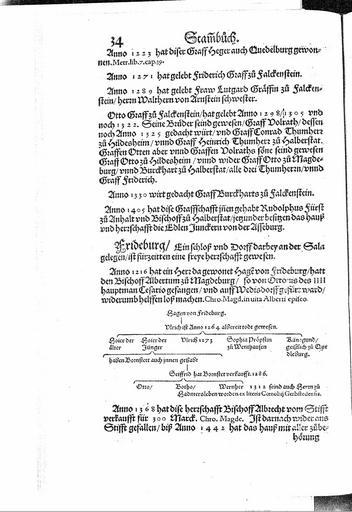 34 Stambůch.
Anno 1223 hat diser Graff Heger auch Quedelburg gewon-
nen. Metr. lib. 7. cap. 19.
Anno 1271 hat gelebt Friderich Graff zů Falckenstein.
Anno 1289 hat gelebt Fraw Lutgard Gräffin zů Falcken-
stein/ herrn Walthern von Arnstein schwester.
Otto Graff zů Falckenstein/ hat gelebt Anno 1298/ 1305 vnd
noch 1322. Seine Brüder seind gewesen/ Graff Volrath/ dessen
noch Anno 1325 gedacht würt/ vnd Graff Conrad Thumherz
zů Hildesheim/ vnnd Graff Heinrich Thumherz zů Halberstat.
Graffen Otten aber vnnd Graffen Volraths söne seind gewesen
Graff Otto zů Hildesheim/ vnnd wider Graff Otto zů Magde-
burg/ vnnd Burckhart zů Halberstat/ alle drei Thumherrn/ vnnd
Graff Friderich.
Anno 1330 wirt gedacht Graff Burckharts zů Falckenstein.
Anno 1405 hat dise Graffschafft jñen gehabt Rudolphus Fürst
zů Anhalt vnd Bischoff zů Halberstat/ jetzunder besitzen das hauß
vnd herrschafft die Edlen Junckern von der Asseburg.
Frideburg/ Ein schloß vnd Dorff darbey an der Sala
gelegen/ ist fürzeiten eine freye herrschafft gewesen.
Anno 1216 hat ein Herz da gewonet Hage von Frideburg/ hatt
den Bischoff Albertum zů Magdeburg/ so von Ottonis des IIII
hauptman Cesario gefangen/ vnd auff
widerumb helffen loß machen. Chro. Magd. in uita Alberti episco.
Hagen von Frideburg.
Vlrich ist Anno 1264 albereit todt gewesen.
Hoier der Hoier der Vlrich 1273 Sophia Pröpstin
älter Jünger zů
haben Bornstett auch jnnen gehabt
Seiffrid hat Bornstet verkaufft. 1286.
Otto/ Botho/ Wernher 1312 seind auch Herrn zů
Hadmersleben worden ex literis Cornelij
Anno 1368 hat dise herrschafft Bischoff Albrecht vom Stifft
verkaufft für 300 Marck. Chro. Magde. Ist darnach wider ans
Stifft gefallen/ biß Anno 1442 hat das hauß mit aller zůbe-
hörung